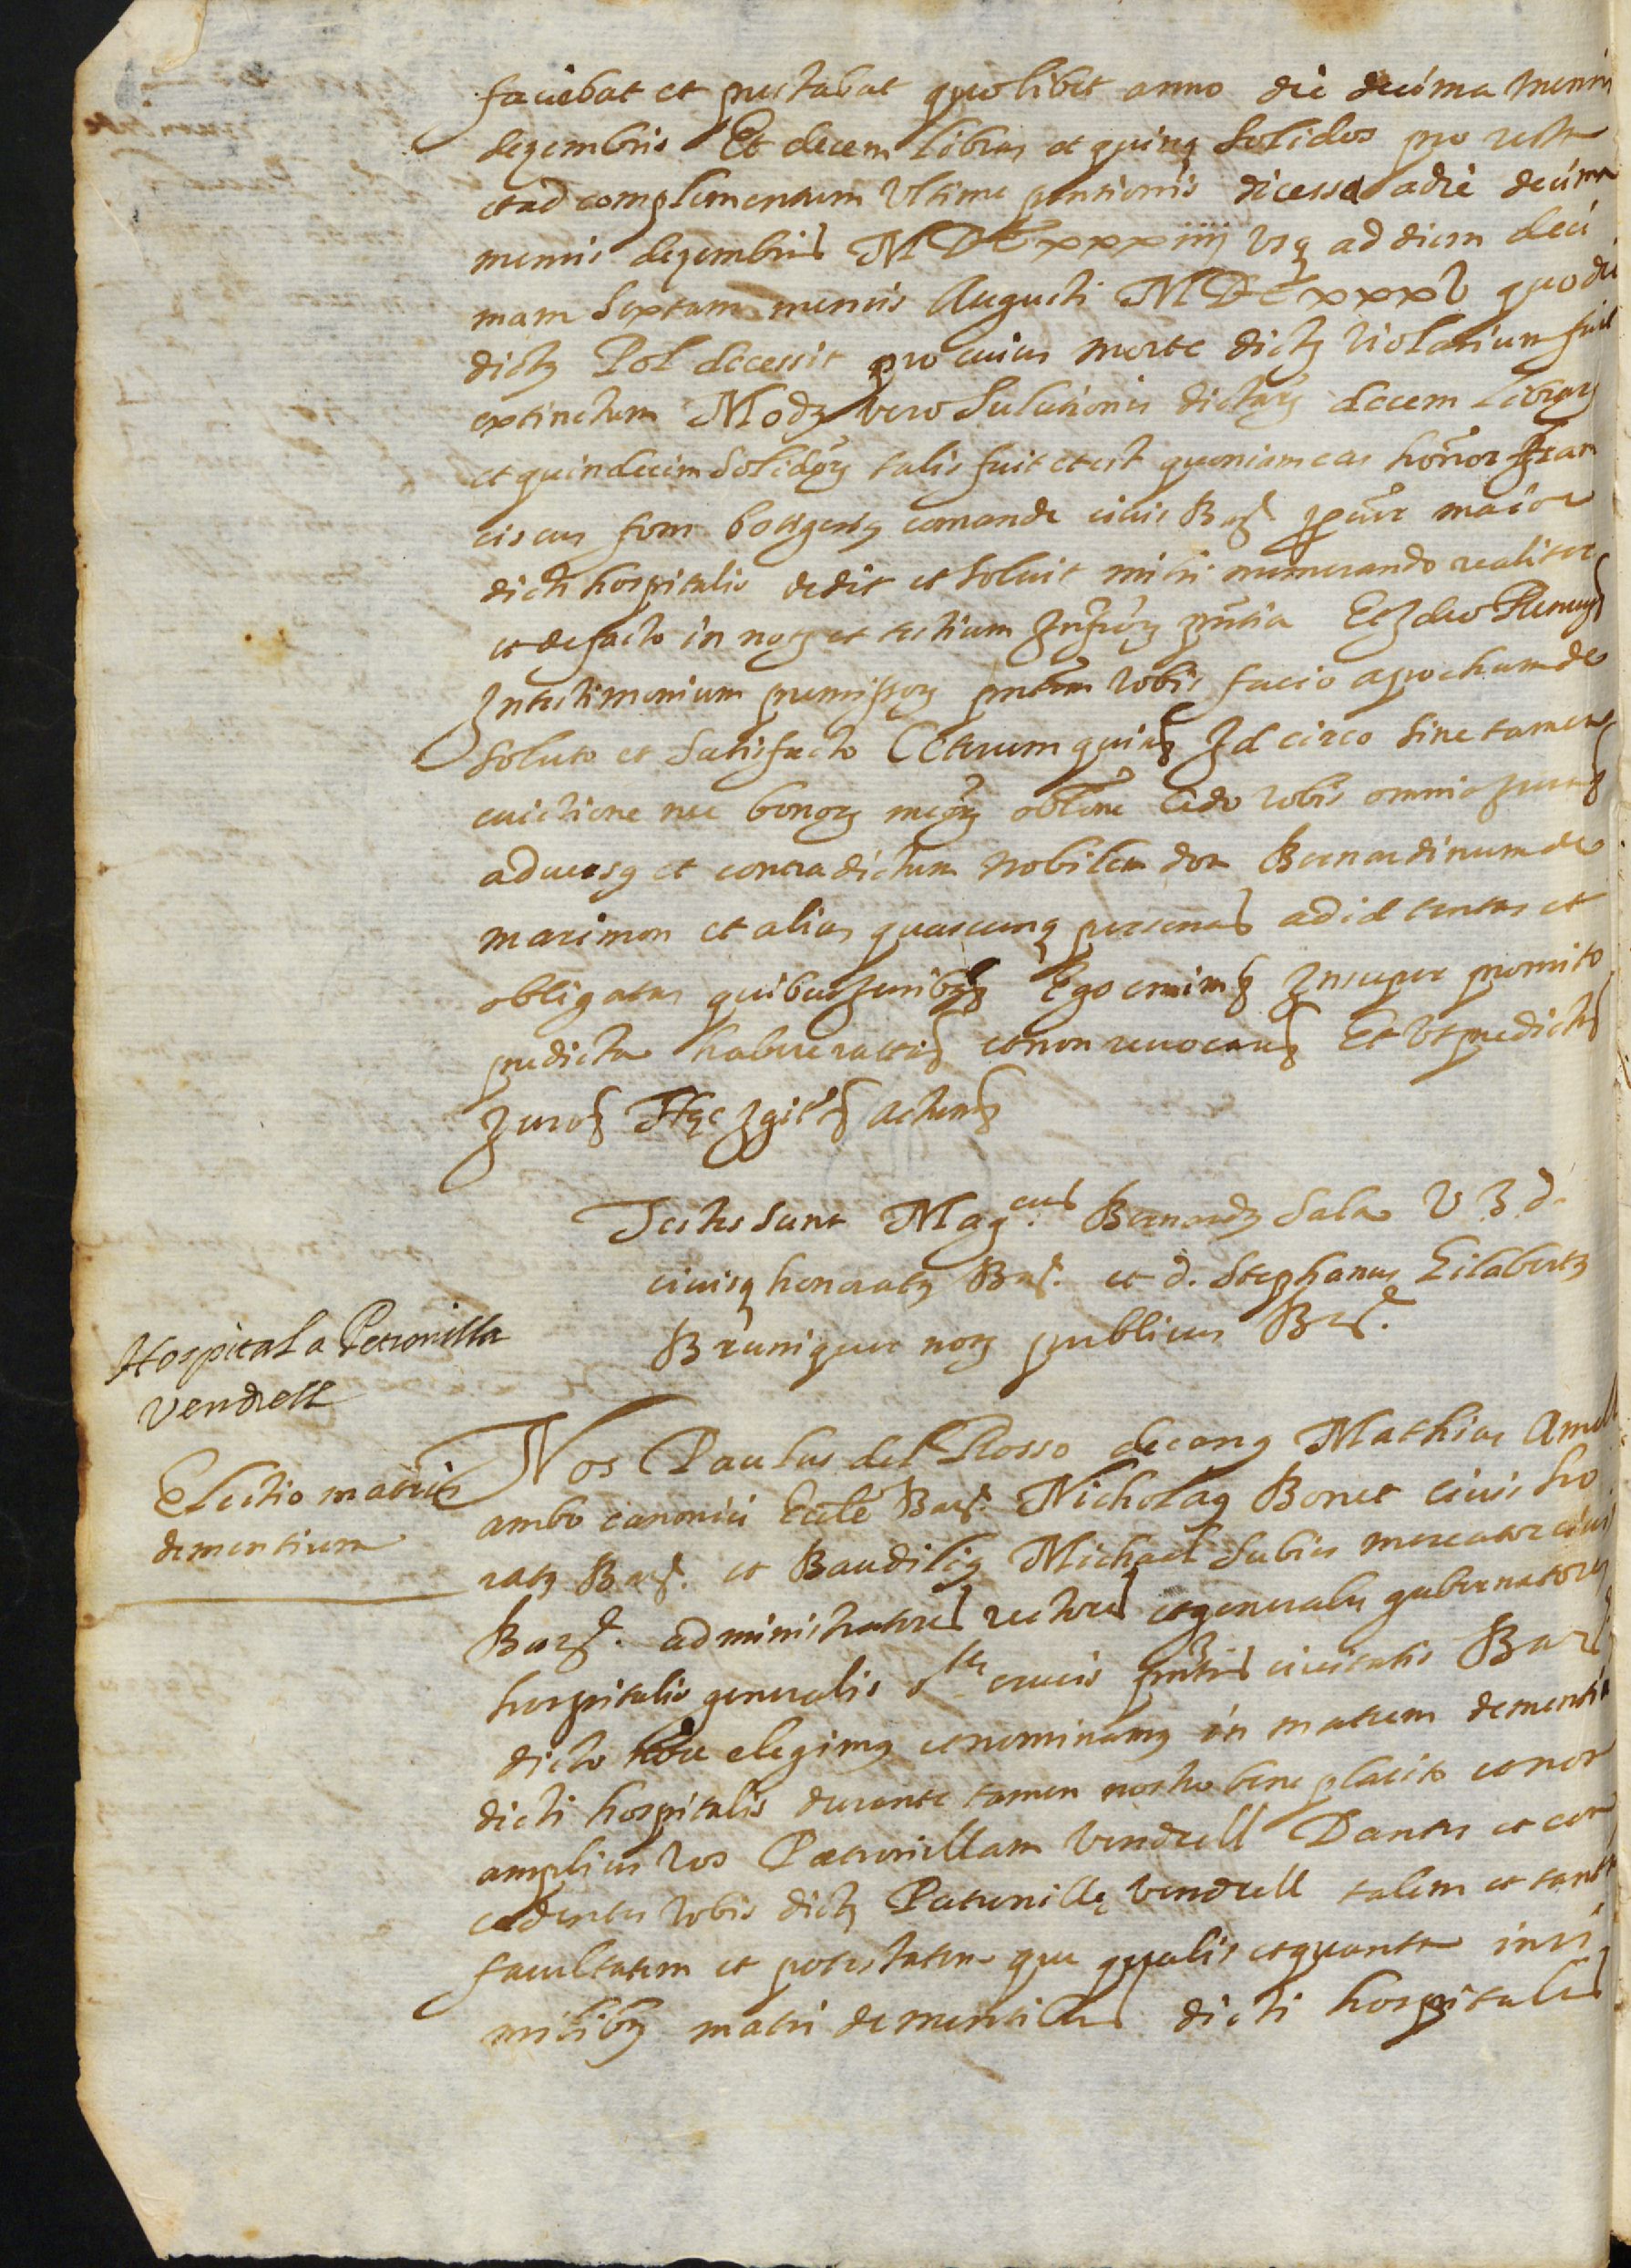 faciebat et prestabat quolibet anno die decima mensis
dezembris Et decem libras et quinq solidos pro resta
et ad complementum ultime pentionis dicessa a die decima
mensis dezembris MDCxxxiiij usq ad diem deci
mam septam mensis Augusti MDCxxxv quo die
dictus Pol decessit pro cuius morte dictum violarium fuit
extinctum Modus vero solutionis dictarum decem librarum
et quindecim solidorum talis fuit et est quoniam eas honor Fran
ciscus fom botigerius comanda civis Bar prior maior
dicti hospitalis dedit et solvit mihi numerando realiter
et de facto in notarii et testium infrorum pntia Et ideo Renun
In testimonium premissorum pntem vobis facio apocham de
soluto et satisfacto Ceterum quia Id circo sine tamen
evictione nec bonorum meorum oblone cedo vobis omnia jura
adversus et contra dictum nobilem don Bernardinum de
marimon et alias quascunq personas ad id tentas et
obligatas quibus juribus Ego enim Insuper promito
predicta habere rata et non revocare Et ut predicta
juro Hęc igitur actum
Testes sunt Mag.cus Bernardus Sala U J d.
civisq honoratus Bar. et d. Stephanus Gilabertus
Bruniquer notus publicus Bar.
Hospital a Petronilla
Vendrell
Electio matris
dementium
Nos Paulus del Rosso decanus Mathias Amell
ambo canonici Ecclē Bar. Nicholaus Bonet civis ho
ratus Bar. et Baudilius Michael Subies mercator civis
Bar. administratores rectores et generales gubernatores
hospitalis generalis s.te crucis pntis civitatis Bar
dicto noīe elegimus et nominamus in matrem dementiū
dicti hospitalis durante tamen nostro bene placito et non
amplius vos Petronillam Vendrell Dantes et con
cedentes vobis dictę Petronillę Vendrell talem et tantā
facultatem et potestatem que qualis et quanta invi
milibus matri dementium dicti hospitalis